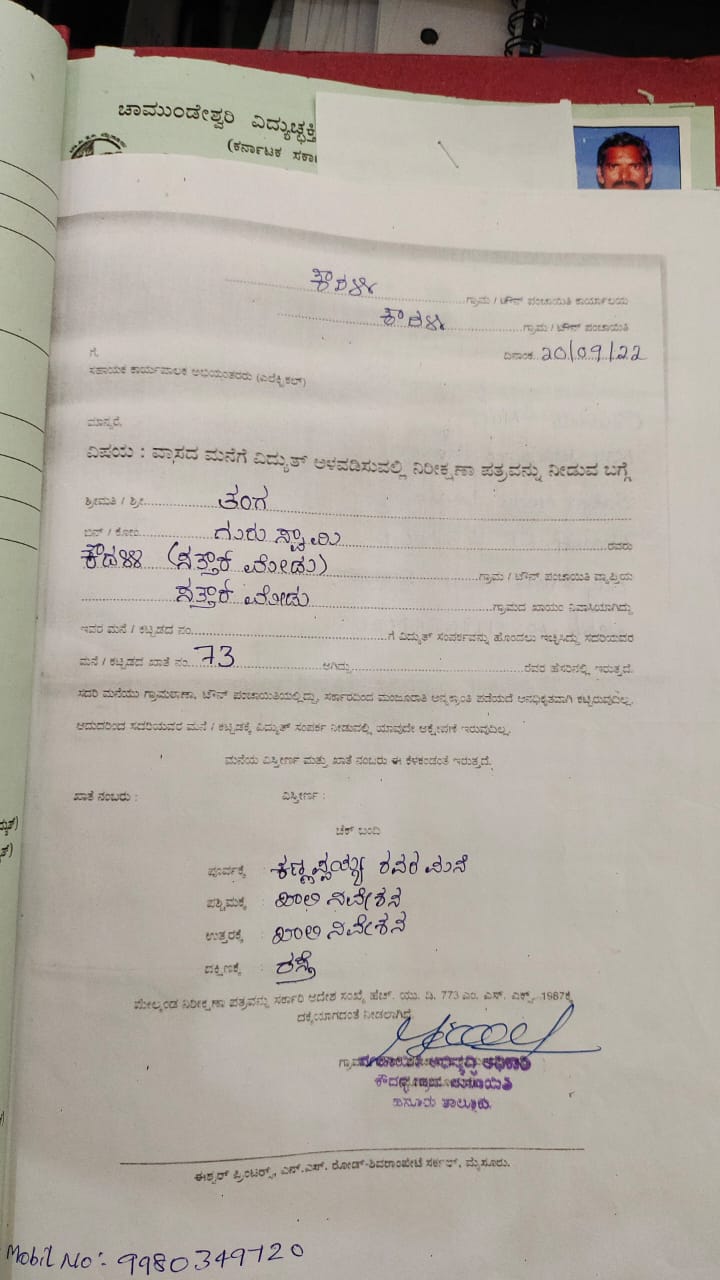 ಚಾಮುಂಡೇಶ್ವರಿ ವಿದ್ಯುಚ್ಛಕ್ತಿ
(ಕರ್ನಾಟಕ ಸರ್ಕಾ
ಕೌದಳ್ಳಿ ಗ್ರಾಮ / ಟೌನ್ ಪಂಚಾಯಿತಿ ಕಾರ್ಯಾಲಯ
ಕೌದಳ್ಳಿ ಗ್ರಾಮ / ಟೌನ್ ಪಂಚಾಯಿತಿ
ದಿನಾಂಕ 20/09/22
ಗೆ,
ಸಹಾಯಕ ಕಾರ್ಯಪಾಲಕ ಅಭಿಯಂತರರು (ಎಲೆಕ್ಟ್ರಿಕಲ್)
ಮಾನ್ಯರೆ,
ವಿಷಯ : ವಾಸದ ಮನೆಗೆ ವಿದ್ಯುತ್ ಅಳವಡಿಸುವಲ್ಲಿ ನಿರೀಕ್ಷಣಾ ಪತ್ರವನ್ನು ನೀಡುವ ಬಗ್ಗೆ
ಶ್ರೀಮತಿ / ಶ್ರೀ ತಂಗ
ಬಿನ್ / ಕೋಂ ಗುರುಸ್ವಾಮಿ ರವರು
ಕೌದಳ್ಳಿ ಗ್ರಾಮ / ಟೌನ್ ಪಂಚಾಯಿತಿ ವ್ಯಾಪ್ತಿಯ
ಗ್ರಾಮದ ಖಾಯಂ ನಿವಾಸಿಯಾಗಿದ್ದು
ಇವರ ಮನೆ / ಕಟ್ಟಡದ ನಂ. ಗೆ ವಿದ್ಯುತ್ ಸಂಪರ್ಕವನ್ನು ಹೊಂದಲು ಇಚ್ಛಿಸಿದ್ದು ಸದರಿಯವರ
ಮನೆ / ಕಟ್ಟಡದ ಖಾತೆ ನಂ. 73 ಆಗಿದ್ದು ರವರ ಹೆಸರಿನಲ್ಲಿ ಇರುತ್ತದೆ.
ಸದರಿ ಮನೆಯು ಗ್ರಾಮಠಾಣಾ, ಟೌನ್ ಪಂಚಾಯಿತಿಯಲ್ಲಿದ್ದು, ಸರ್ಕಾರದಿಂದ ಮಂಜೂರಾತಿ ಅನ್ಯಕ್ರಾಂತಿ ಪಡೆಯದೆ ಅನಧಿಕೃತವಾಗಿ ಕಟ್ಟಿರುವುದಿಲ್ಲ.
ಆದುದರಿಂದ ಸದರಿಯವರ ಮನೆ / ಕಟ್ಟಡಕ್ಕೆ ವಿದ್ಯುತ್ ಸಂಪರ್ಕ ನೀಡುವಲ್ಲಿ ಯಾವುದೇ ಆಕ್ಷೇಪಣೆ ಇರುವುದಿಲ್ಲ.
ಮನೆಯ ವಿಸ್ತೀರ್ಣ ಮತ್ತು ಖಾತೆ ನಂಬರು ಈ ಕೆಳಕಂಡಂತೆ ಇರುತ್ತದೆ.
ಖಾತೆ ನಂಬರು : ವಿಸ್ತೀರ್ಣ :
ಚೆಕ್ ಬಂದಿ
ಪೂರ್ವಕ್ಕೆ : ಕಣ್ಣಪ್ಪಯ್ಯ ರವರ ಮನೆ
ಪಶ್ಚಿಮಕ್ಕೆ : ಖಾಲಿ ನಿವೇಶನ
ಉತ್ತರಕ್ಕೆ : ಖಾಲಿ ನಿವೇಶನ
ದಕ್ಷಿಣಕ್ಕೆ : ರಸ್ತೆ
ಮೇಲ್ಕಂಡ ನಿರೀಕ್ಷಣಾ ಪತ್ರವನ್ನು ಸರ್ಕಾರಿ ಆದೇಶ ಸಂಖ್ಯೆ ಹೆಚ್. ಯು. ಡಿ. 773 ಎಂ. ಎಸ್. ಎಕ್ಸ್. 1987ಕ್ಕೆ
ದಕ್ಕೆಯಾಗದಂತೆ ನೀಡಲಾಗಿದೆ
ಪಂಚಾಯಿತಿ ಅಭಿವೃದ್ಧಿ ಅಧಿಕಾರಿ
ಕೌದಳ್ಳಿ ಗ್ರಾಮ ಪಂಚಾಯಿತಿ
ಹನೂರು ತಾಲ್ಲೂಕು.
ಈಶ್ವರ್ ಪ್ರಿಂಟರ್ಸ್, ಎನ್.ಎಸ್. ರೋಡ್-ಶಿವರಾಂಪೇಟೆ ಸರ್ಕಲ್, ಮೈಸೂರು.
Mobil No:- 9980349720